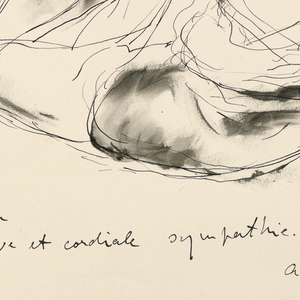 et cordiale sympathie.